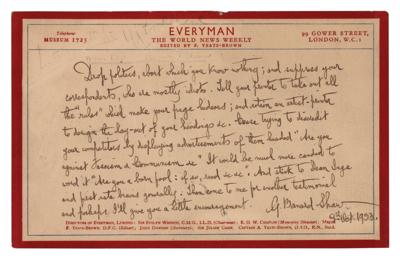 Telephone
MUSEUM 1725
EVERYMAN
THE WORLD NEWS WEEKLY
EDITED BY F. YEATS-BROWN
99 GOWER STREET,
LONDON, W.C.1
Drop politics, about which you know nothing; and suppress your
correspondents, who are mostly idiots. Tell your printer to take out all
the "rules" which make your page hideous; and intern an artist-printer
to design the lay-out of your headings &c. Cease trying to discredit
your competitors by displaying advertisements of them headed "Are you
against Fascism & Communism &c" It would be much more candid to
word it "Are you a born fool: if so, read &c &c." And stick to Dean Inge
and pest rate brains generally. Then come to me for another testimonial
and perhaps I'll give you a little encouragement.
G. Bernard Shaw
9th Oct. 1933.
DIRECTORS OF EVERYMAN, LIMITED: SIR EVELYN WRENCH, C.M.G., LL.D. (Chairman); E. O. W. (Managing Director); Major
F. YEATS-BROWN, D.F.C. (Editor); JOHN (Secretary); SIR JULIAN CAHN; CAPTAIN A. YEATS-BROWN, R.N., Retd.